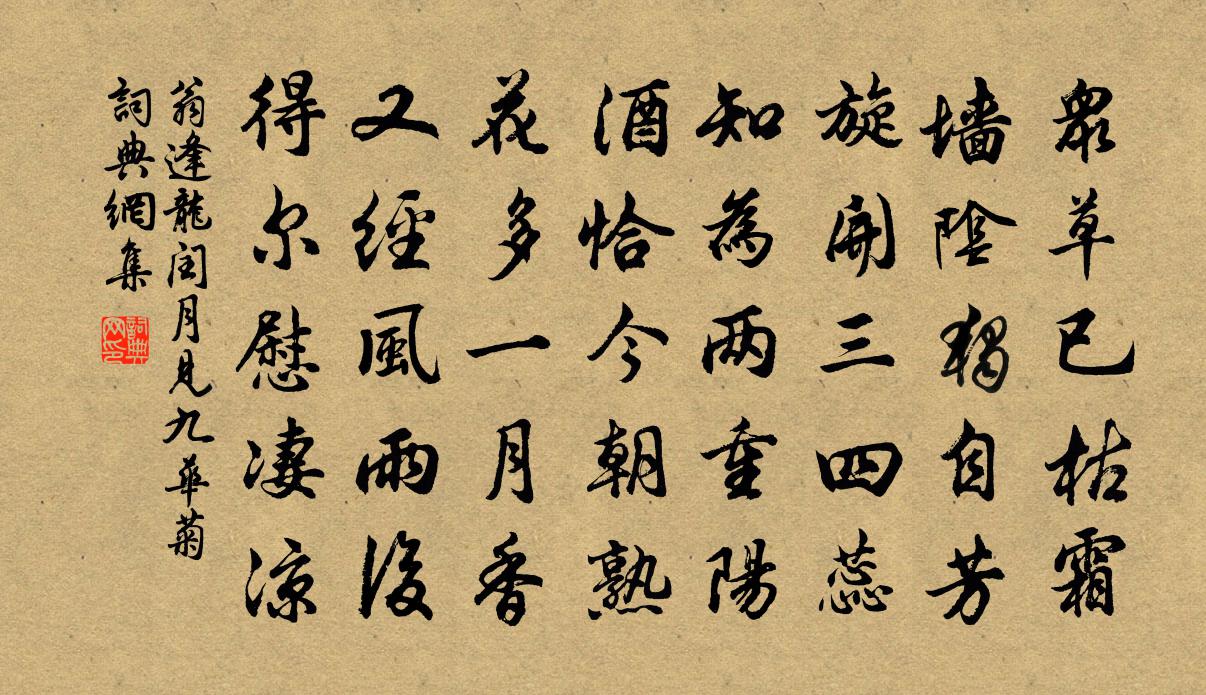 衆草已枯霜
墻陰獨自芳
旋開三四蕊
知為两重陽
酒恰今朝熟
花多一月香
又經風雨後
得尔慰凄涼
翁逢龍閏月見九華菊
詞典網集
詞典
网印